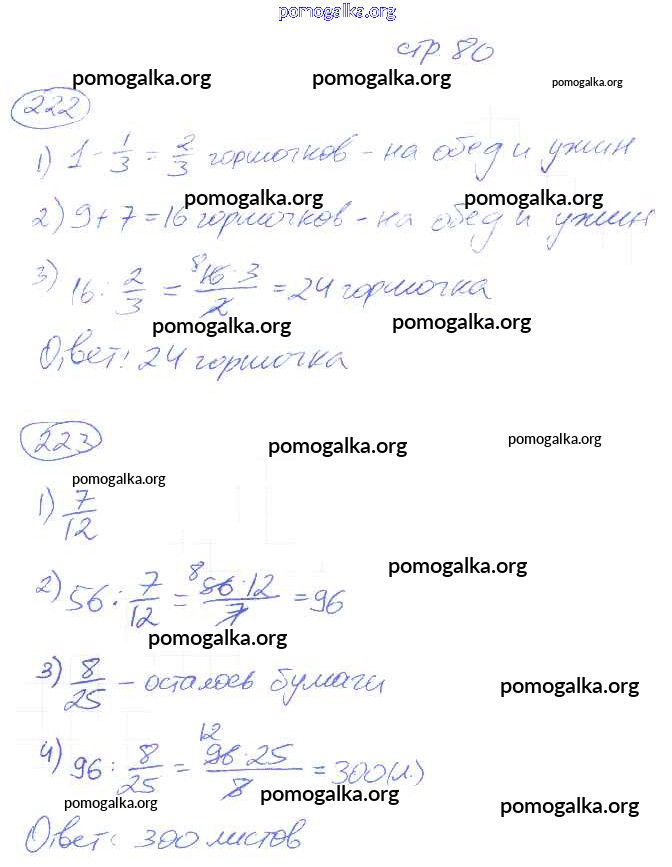 pomogalka.org
стр. 80
pomogalka.org pomogalka.org pomogalka.org
222
1) 1 - 1/3 = 2/3 горшочков - на обед и ужин
pomogalka.org pomogalka.org
2) 9 + 7 = 16 горшочков - на обед и ужин
3) 16 : 2/3 = 16^8 · 3 / 2 = 24 горшочка
pomogalka.org pomogalka.org
Ответ: 24 горшочка
223
pomogalka.org pomogalka.org
pomogalka.org
1) 7/12
pomogalka.org
2) 56 : 7/12 = 56^8 · 12 / 7 = 96
pomogalka.org
3) 8/25 - осталось бумаги
pomogalka.org
4) 96 : 8/25 = 96^12 · 25 / 8 = 300 (л.)
pomogalka.org pomogalka.org pomogalka.org
Ответ: 300 листов